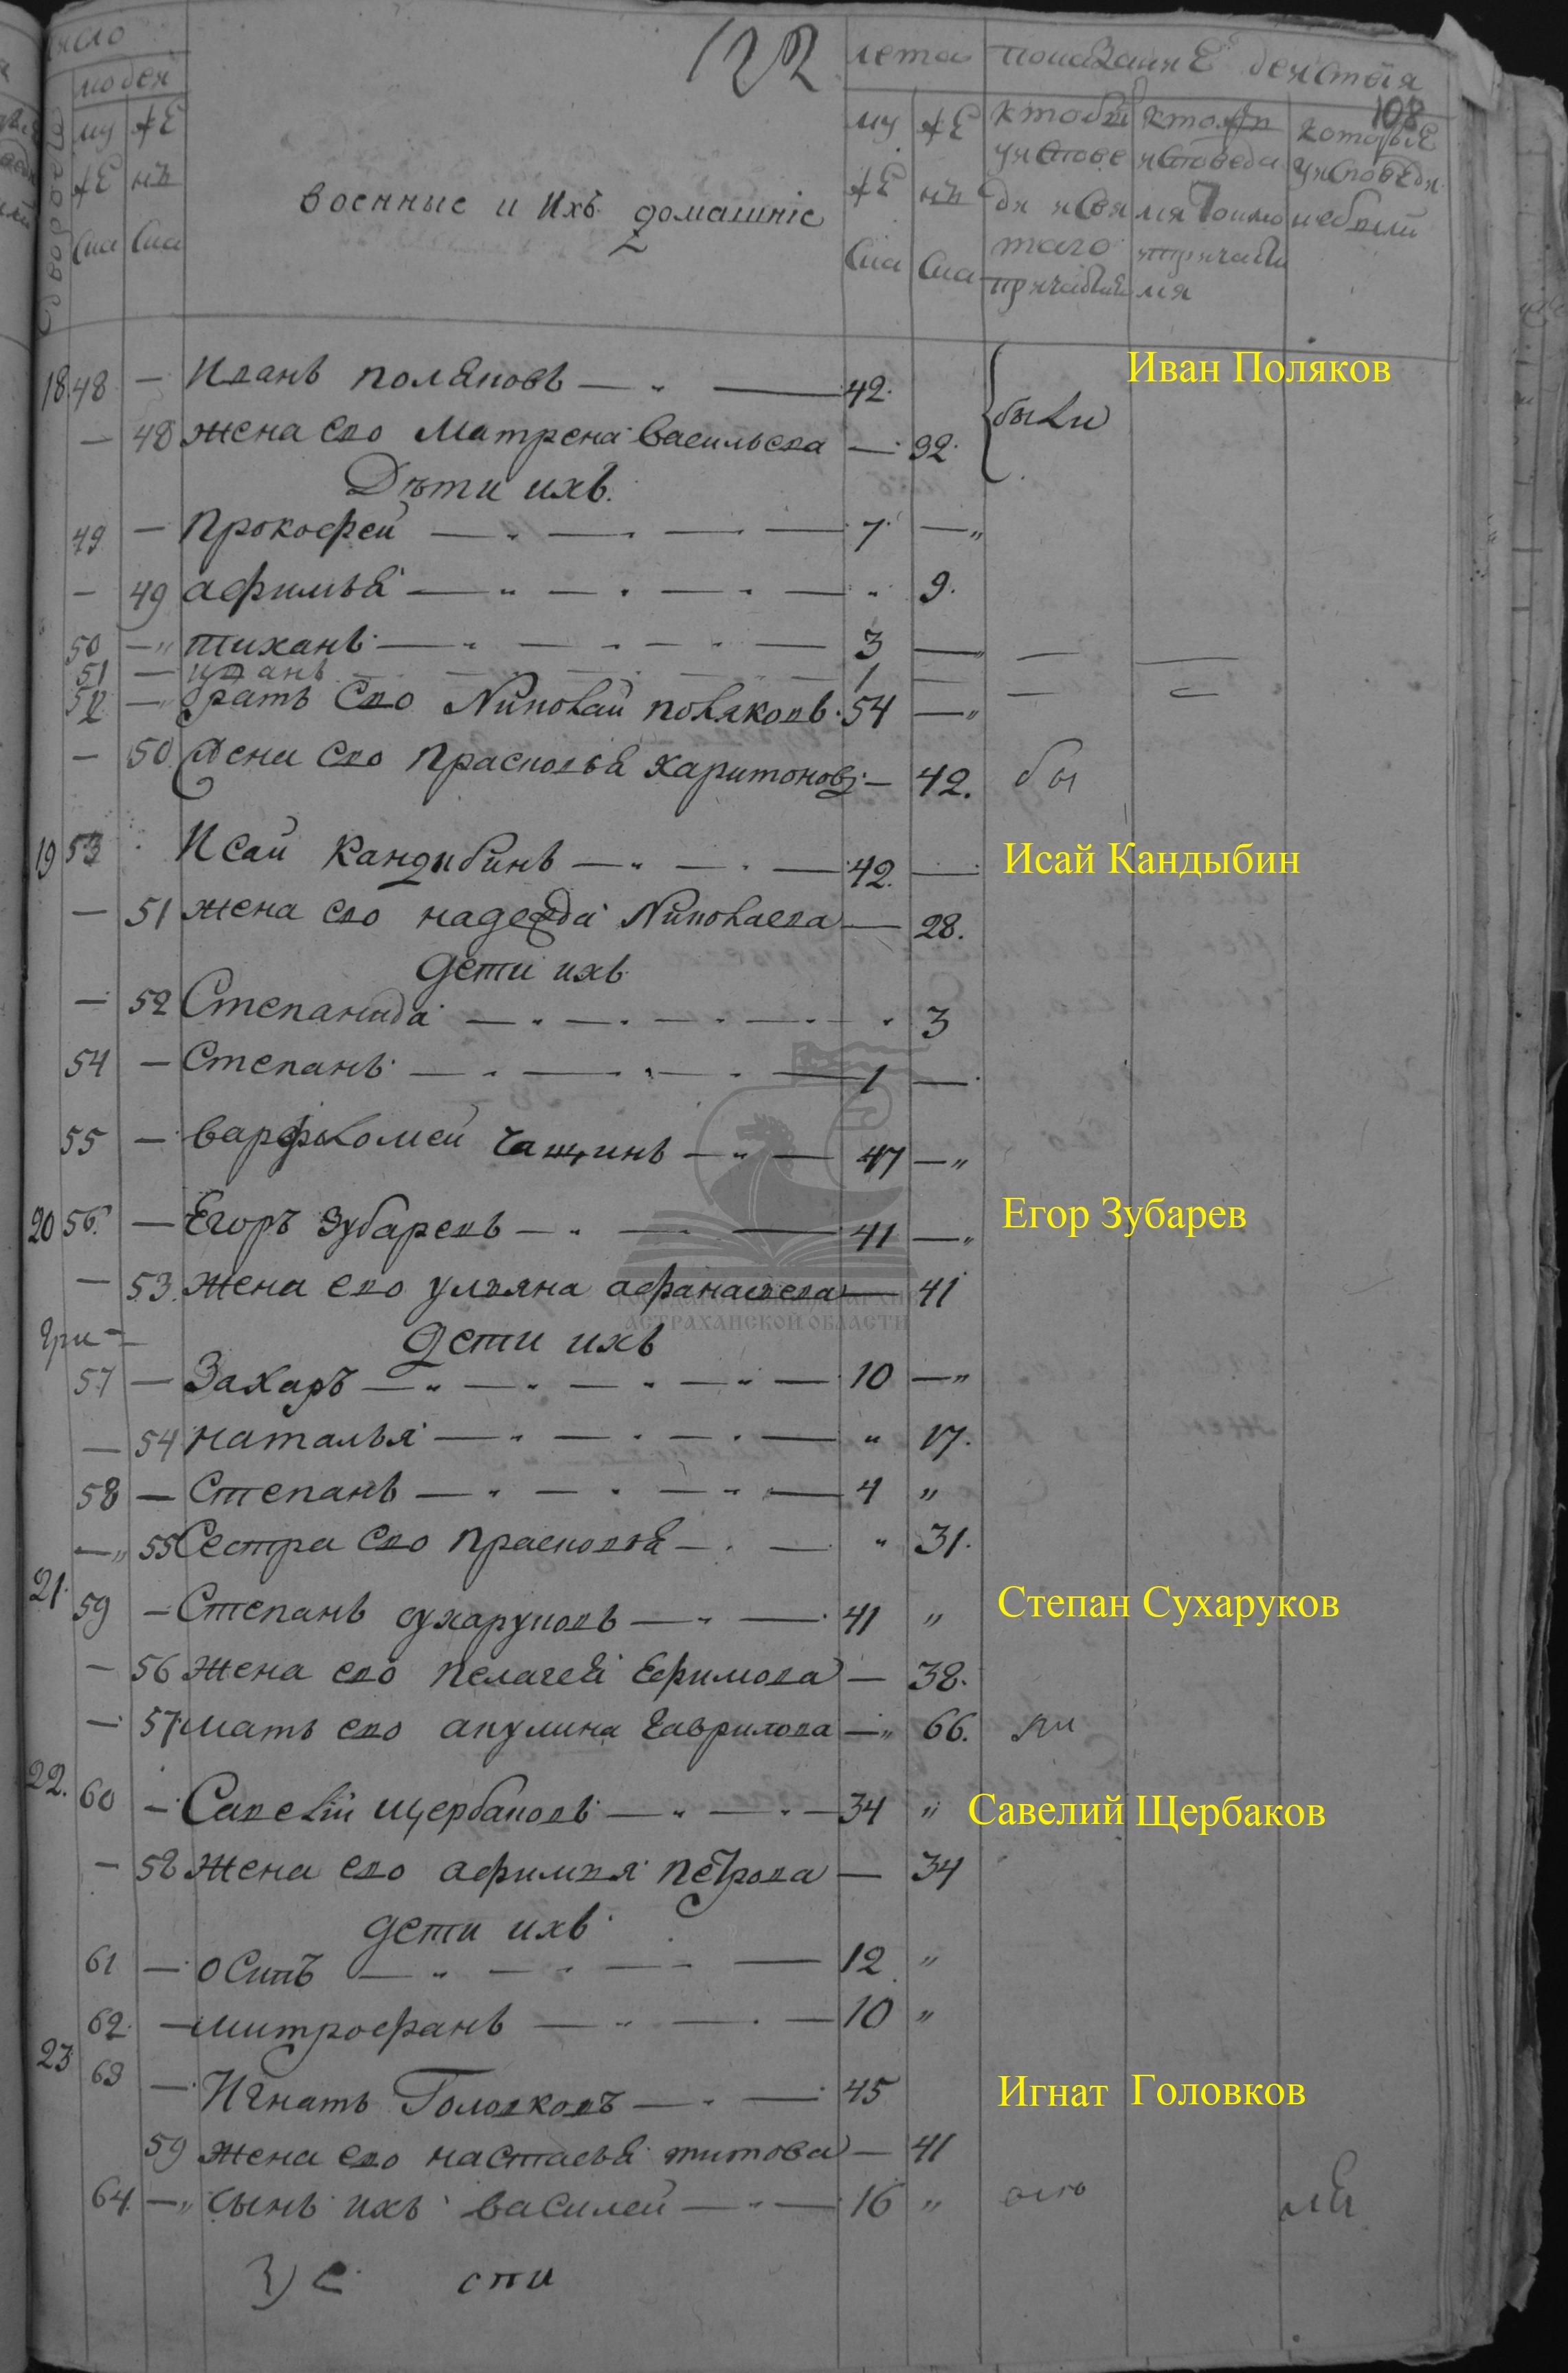 122
108
число
людей
лета
показание действия
дворовъ
му же ска
же нъ ска
военные и ихъ домашнiе
му же ска
же нъ ска
18 48 — Иванъ поляковъ — 42.
Иван Поляков
— 48 жена его Матрена васильева — 32.
были
Дѣти ихъ.
49 — Прокофей — 7 —
— 49 афимья — 9.
50 — тиханъ — 3 —
51 — иванъ — 1 —
52 — братъ Его Николай поляковъ 54 —
— 50 Жена его Прасковья харитонов — 42. бы
19 53 Исай Кандибинъ — 42. —
Исай Кандыбин
— 51 жена его надежда Николаева — 28.
дети ихъ
— 52 Степанида — 3
54 — Степанъ — 1 —
55 — варфоломей чащинъ — 47 —
20 56. — Егоръ Зубаревъ — 41 —
Егор Зубарев
— 53. жена его ульяна афанасьева — 41
АСТРАХАНСКОЙ ОБЛАСТИ
дети ихъ
57 — Захаръ — 10 —
— 54 наталья — 17.
58 — Степанъ — 4 "
— 55 Сестра его прасковья — 31.
21. 59 — Степанъ сухаруковъ — 41 "
Степан Сухаруков
— 56 жена его пелагея Ефимова — 38.
— 57 мать его акулина гаврилова — 66.
22. 60 — Савелiй щербаковъ — 34 "
Савелий Щербаков
— 58 жена его афимья петрова — 34
дети ихъ
61 — осипъ — 12 "
62 — митрофанъ — 10 "
23 63 — Игнатъ Головковъ — 45
Игнат Головков
59 жена его настасья титова — 41
64. — сынъ ихъ василей — 16 "